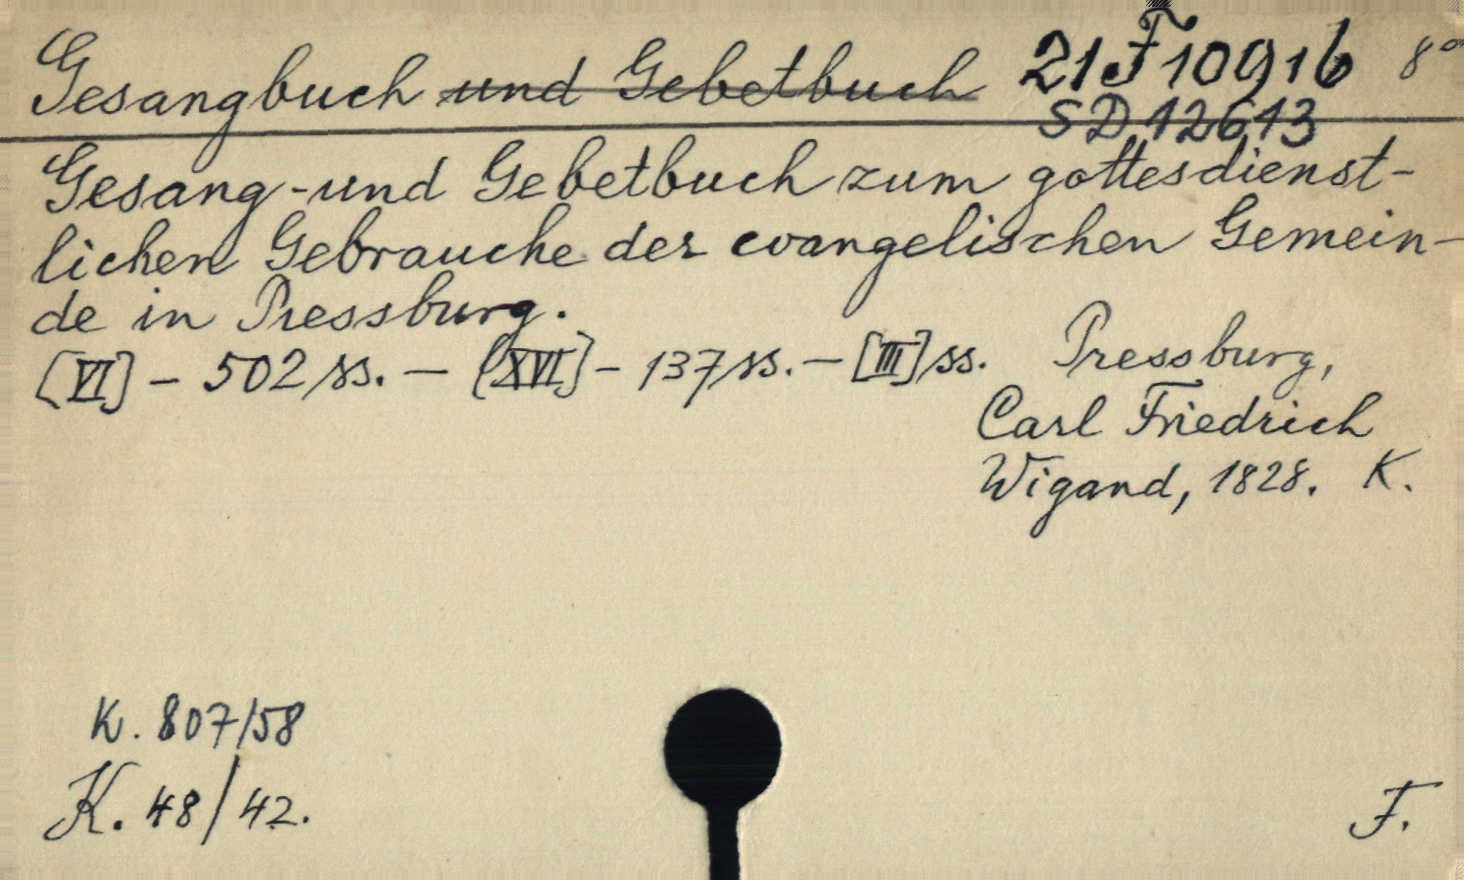 Gesangbuch und Gebetbuch 21 F 10916 8°
SD 12613
Gesang-und Gebetbuch zum gottesdienst-
lichen Gebrauche der evangelischen Gemein-
de in Pressburg.
[VI] - 502 ss. - [XVI] - 137 ss. - [III] ss. Pressburg,
Carl Friedrich
Wigand, 1828. K.
K. 807/58
K. 48/42.
F.